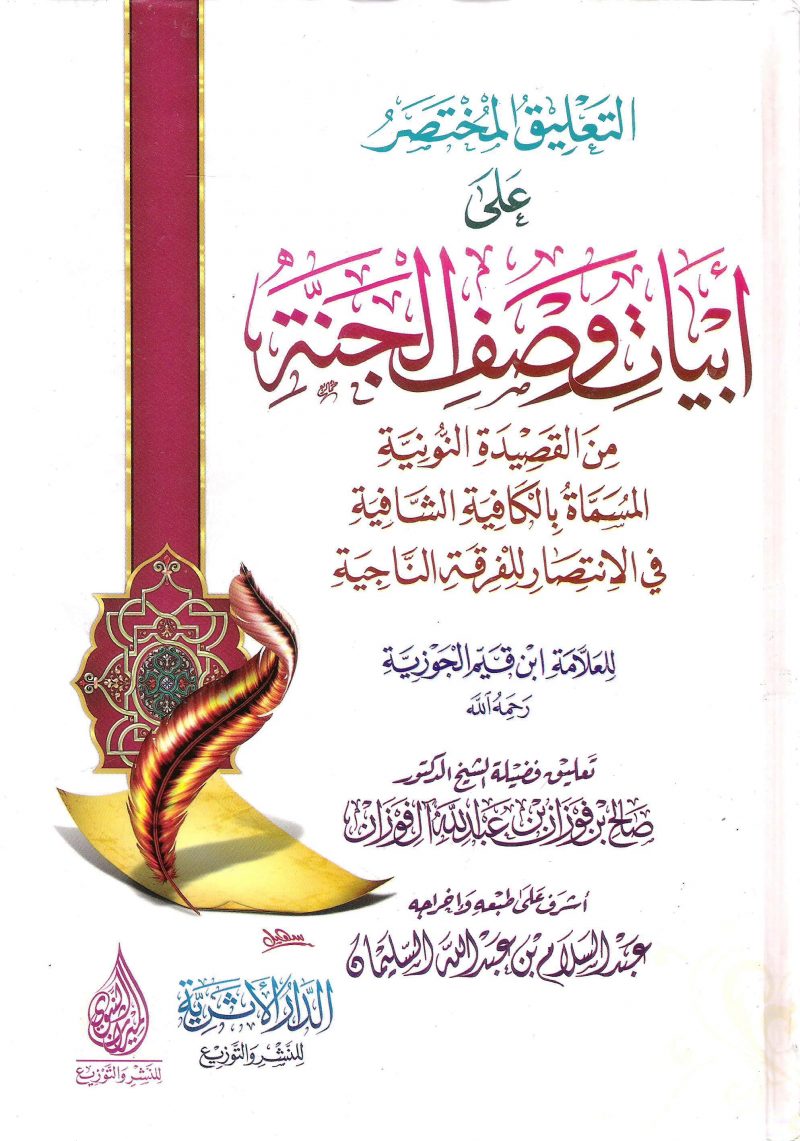 التَعْليقُ المُخْتَصَرُ
عَلَى
أبْيَاتِ وَصْفِ الجَنَّةِ
مِنَ القَصِيْدَةِ النُّونِيَّةِ
المُسَمَّاةُ بِالكَافِيَةِ الشَّافِيَةِ
في الانْتِصَارِ لِلْفِرْقَةِ النَّاجِيَةِ
للعَلَّامَةِ ابْنِ قَيِّمِ الجَوْزِيَّةِ
رَحِمَهُ اللَّه
تعليق فضيلة الشيخ الدكتور
صَالِح بْن فَوْزَان بْن عَبْدِاللَّه آل فَوْزَان
أشرف على طبعه وإخراجه
عَبْد السَّلام بْن عَبْدِ اللَّه السُّلَيْمَان
سهيل
الدَّارُ الأَثَرِيَّة
للنَّشْرِ وَالتَّوْزِيْع
الميراث النبوي
للنَّشْرِ وَالتَّوْزِيْع